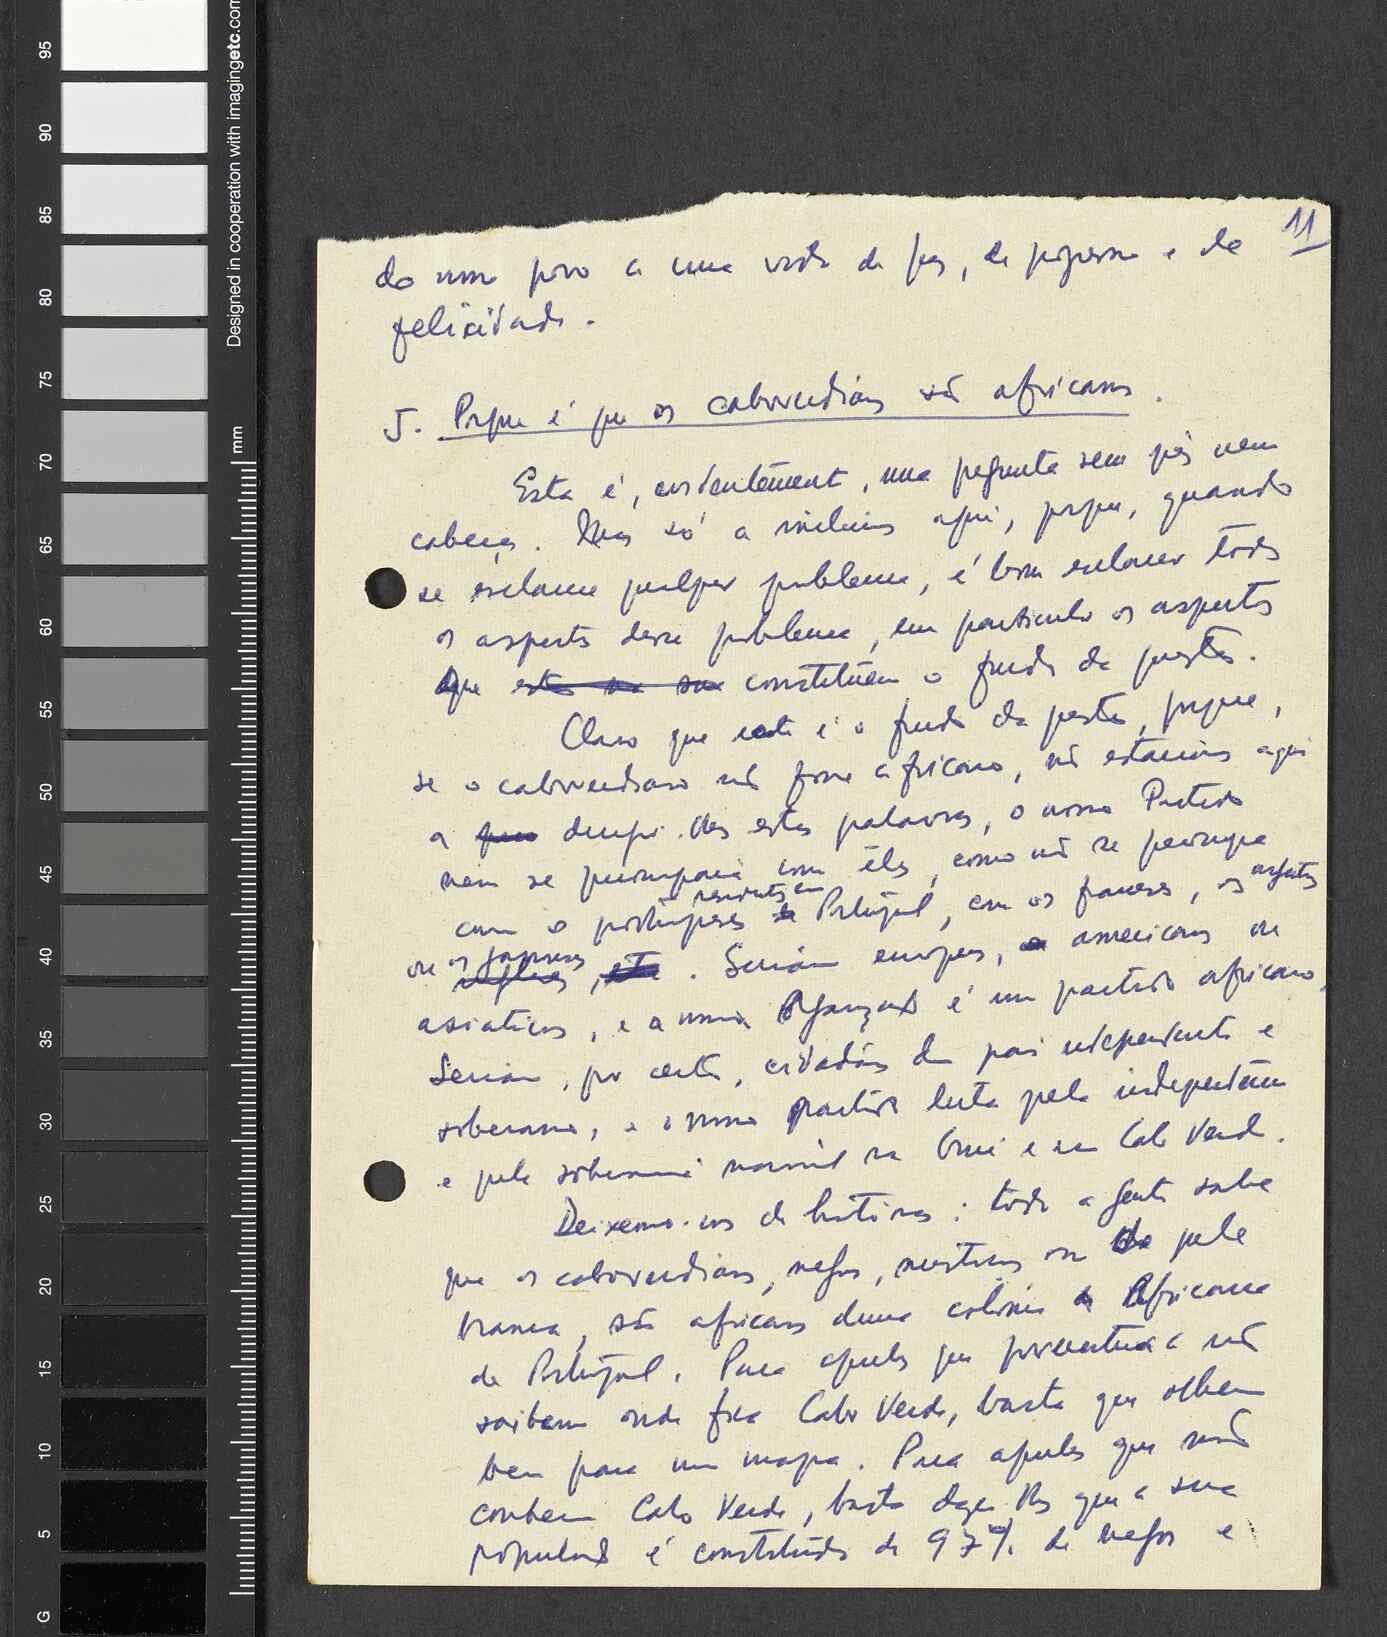 11
do nosso povo a uma vida de paz, de progresso e de
felicidade.
5. Porque é que os caboverdianos são africanos.
Esta é, evidentemente, uma pergunta sem pés nem
cabeça. Mas só a incluimos aqui, porque, quando
se esclarece qualquer problema, é bom esclarecer todos
os aspectos desse problema, em particular os aspectos
que constituem o fundo da questão.
Claro que este é o fundo da questão, porque,
se o caboverdiano não fosse africano, não estaríamos aqui
a dirigir-lhes estas palavras, o nosso Partido
nem se preocuparia com êles, como não se preocupa
com os portugueses residentes em Portugal, com os franceses, os
ou os japoneses. Seriam europeus, americanos ou
asiaticos, e a nossa Organização é um partido africano.
Seriam, por certo, cidadãos dum país independente e
soberano, e o nosso partido luta pela independência
e pela soberania nacional na Guiné e em Cabo Verde.
Deixemo-nos de histórias: toda a gente sabe
que os caboverdianos, negros, mestiços ou de pele
branca, são africanos duma colónia Africana
de Portugal. Para aqueles que porventura não
saibam onde fica Cabo Verde, basta que olhem
bem para um mapa. Para aqueles que não
conhecem Cabo Verde, basta dizer-lhes que a sua
população é constituida de 97% de negros e
Designed in cooperation with imagingetc.com
mm
95
90
85
80
75
70
65
60
55
50
45
40
35
30
25
20
15
10
5
G